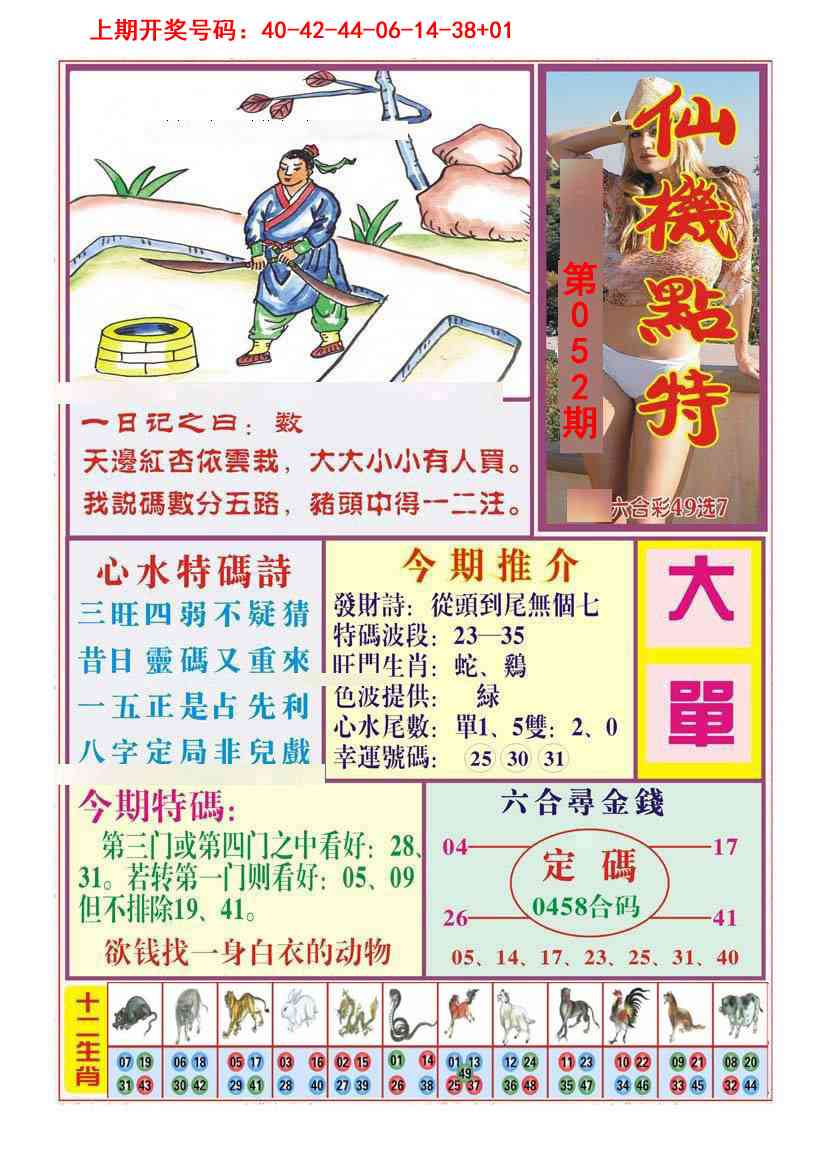 上期开奖号码：40-42-44-06-14-38+01
仙機點特
第052期
六合彩49选7
一日记之曰：数
天邊紅杏依雲栽，大大小小有人買。
我説碼數分五路，豬頭中得一二注。
心水特碼詩
三旺四弱不疑猜
昔日靈碼又重來
一五正是占先利
八字定局非兒戲
今期推介
發財詩：從頭到尾無個七
特碼波段：23—35
旺門生肖：蛇、鷄
色波提供： 緑
心水尾數：單1、5雙：2、0
幸運號碼： 25 30 31
大
單
今期特碼：
第三门或第四门之中看好：28、
31。若转第一门则看好：05、09
但不排除19、41。
欲钱找一身白衣的动物
六合尋金錢
04 17
定碼
0458合码
26 41
05、14、17、23、25、31、40
十二生肖
07 19 06 18 05 17 03 16 02 15 01 14 01 13 12 24 11 23 10 22 09 21 08 20
49
31 43 30 42 29 41 28 40 27 39 26 38 25 37 36 48 35 47 34 46 33 45 32 44